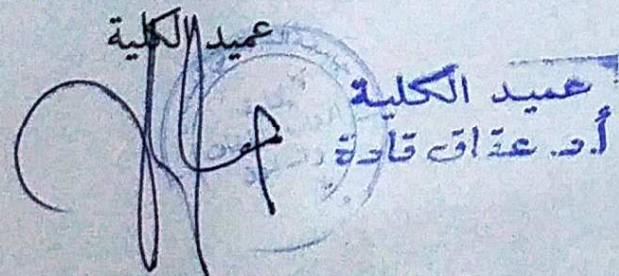 عميد الكلية
عميد الكلية
أ.د. عتاق قادة